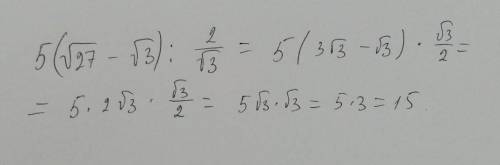 5(√27 - √3) : 2/√3 = 5(3√3 - √3) · √3/2 =
= 5 · 2√3 · √3/2 = 5√3 · √3 = 5 · 3 = 15.